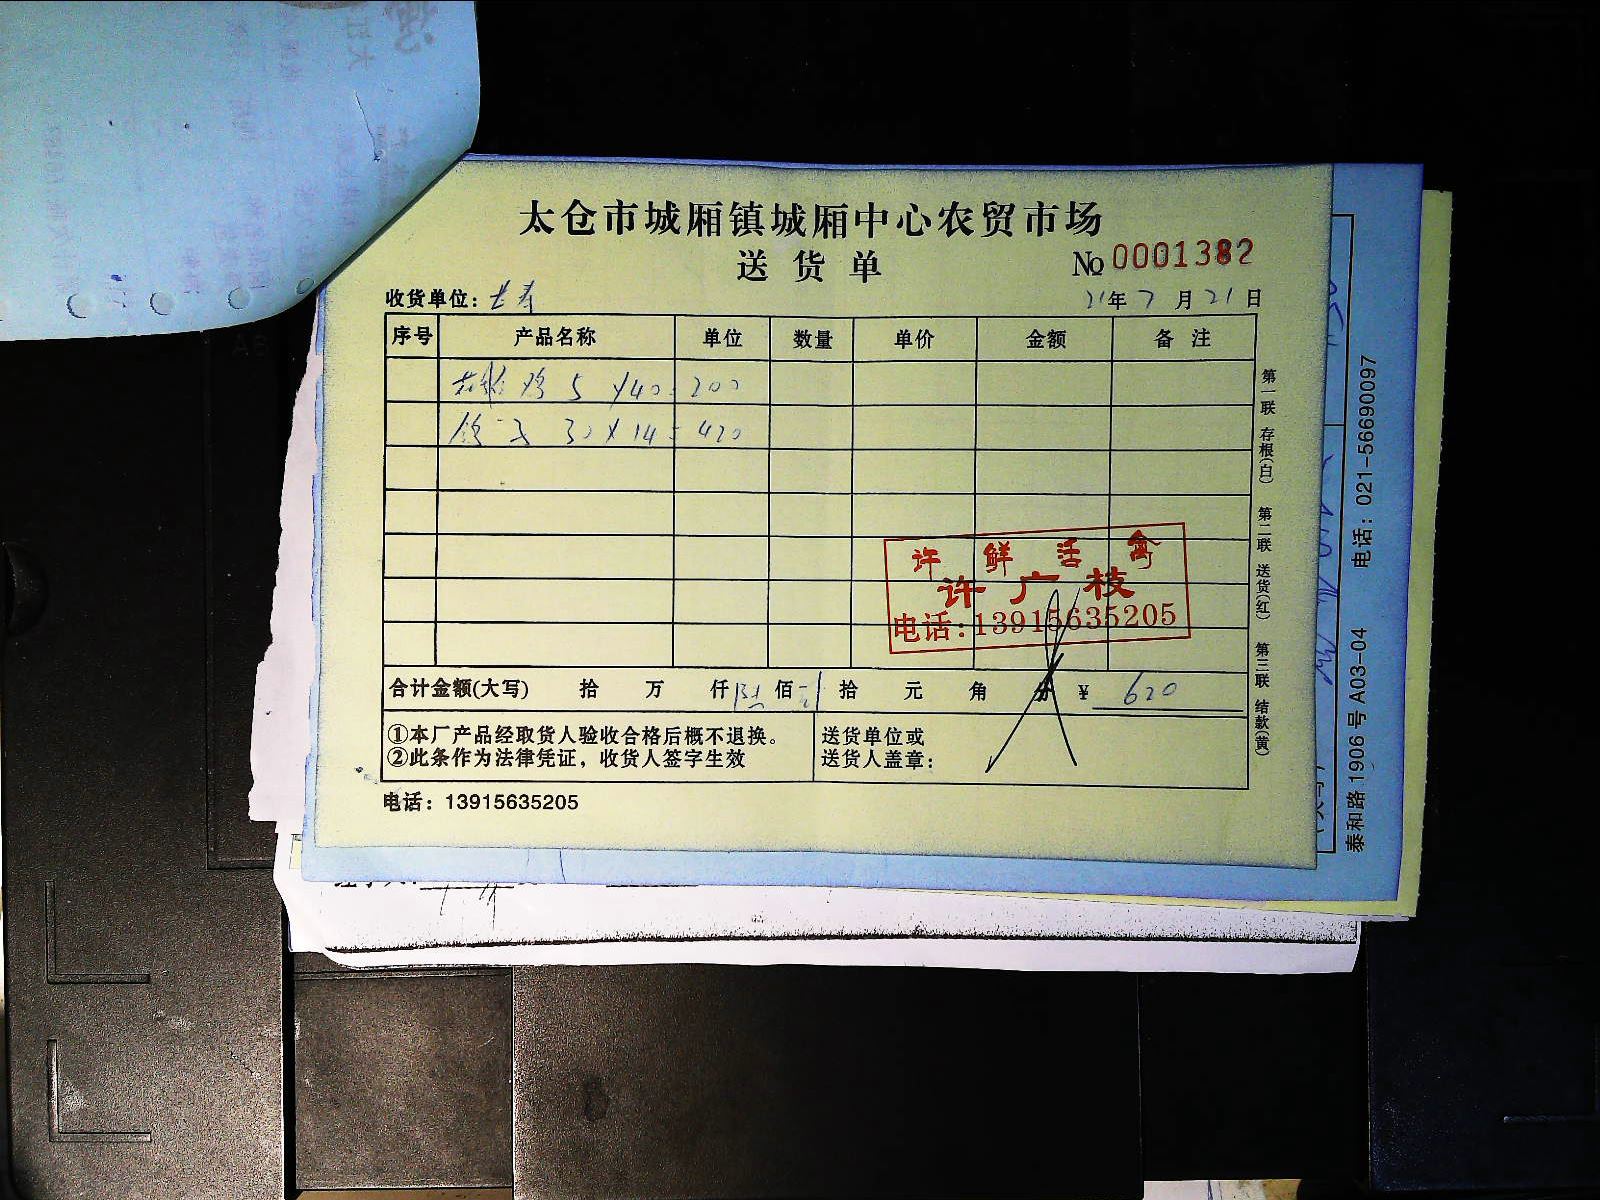 太仓市城厢镇城厢中心农贸市场
送货单
No 0001382
收货单位：长寿 21年7月21日
序号 产品名称 单位 数量 单价 金额 备注
鸡 5 ×40=200
鸽子 30×14=420
许 鲜 活 禽
许广枝
电话:13915635205
合计金额(大写) 拾 万 仟 陆 佰 贰 拾 元 角 分 ¥ 620
①本厂产品经取货人验收合格后概不退换。
②此条作为法律凭证，收货人签字生效
送货单位或
送货人盖章：
电话：13915635205
第一联 存根(白) 第二联 送货(红) 第三联 结款(黄)
泰和路1906号A03-04 电话：021-56690097